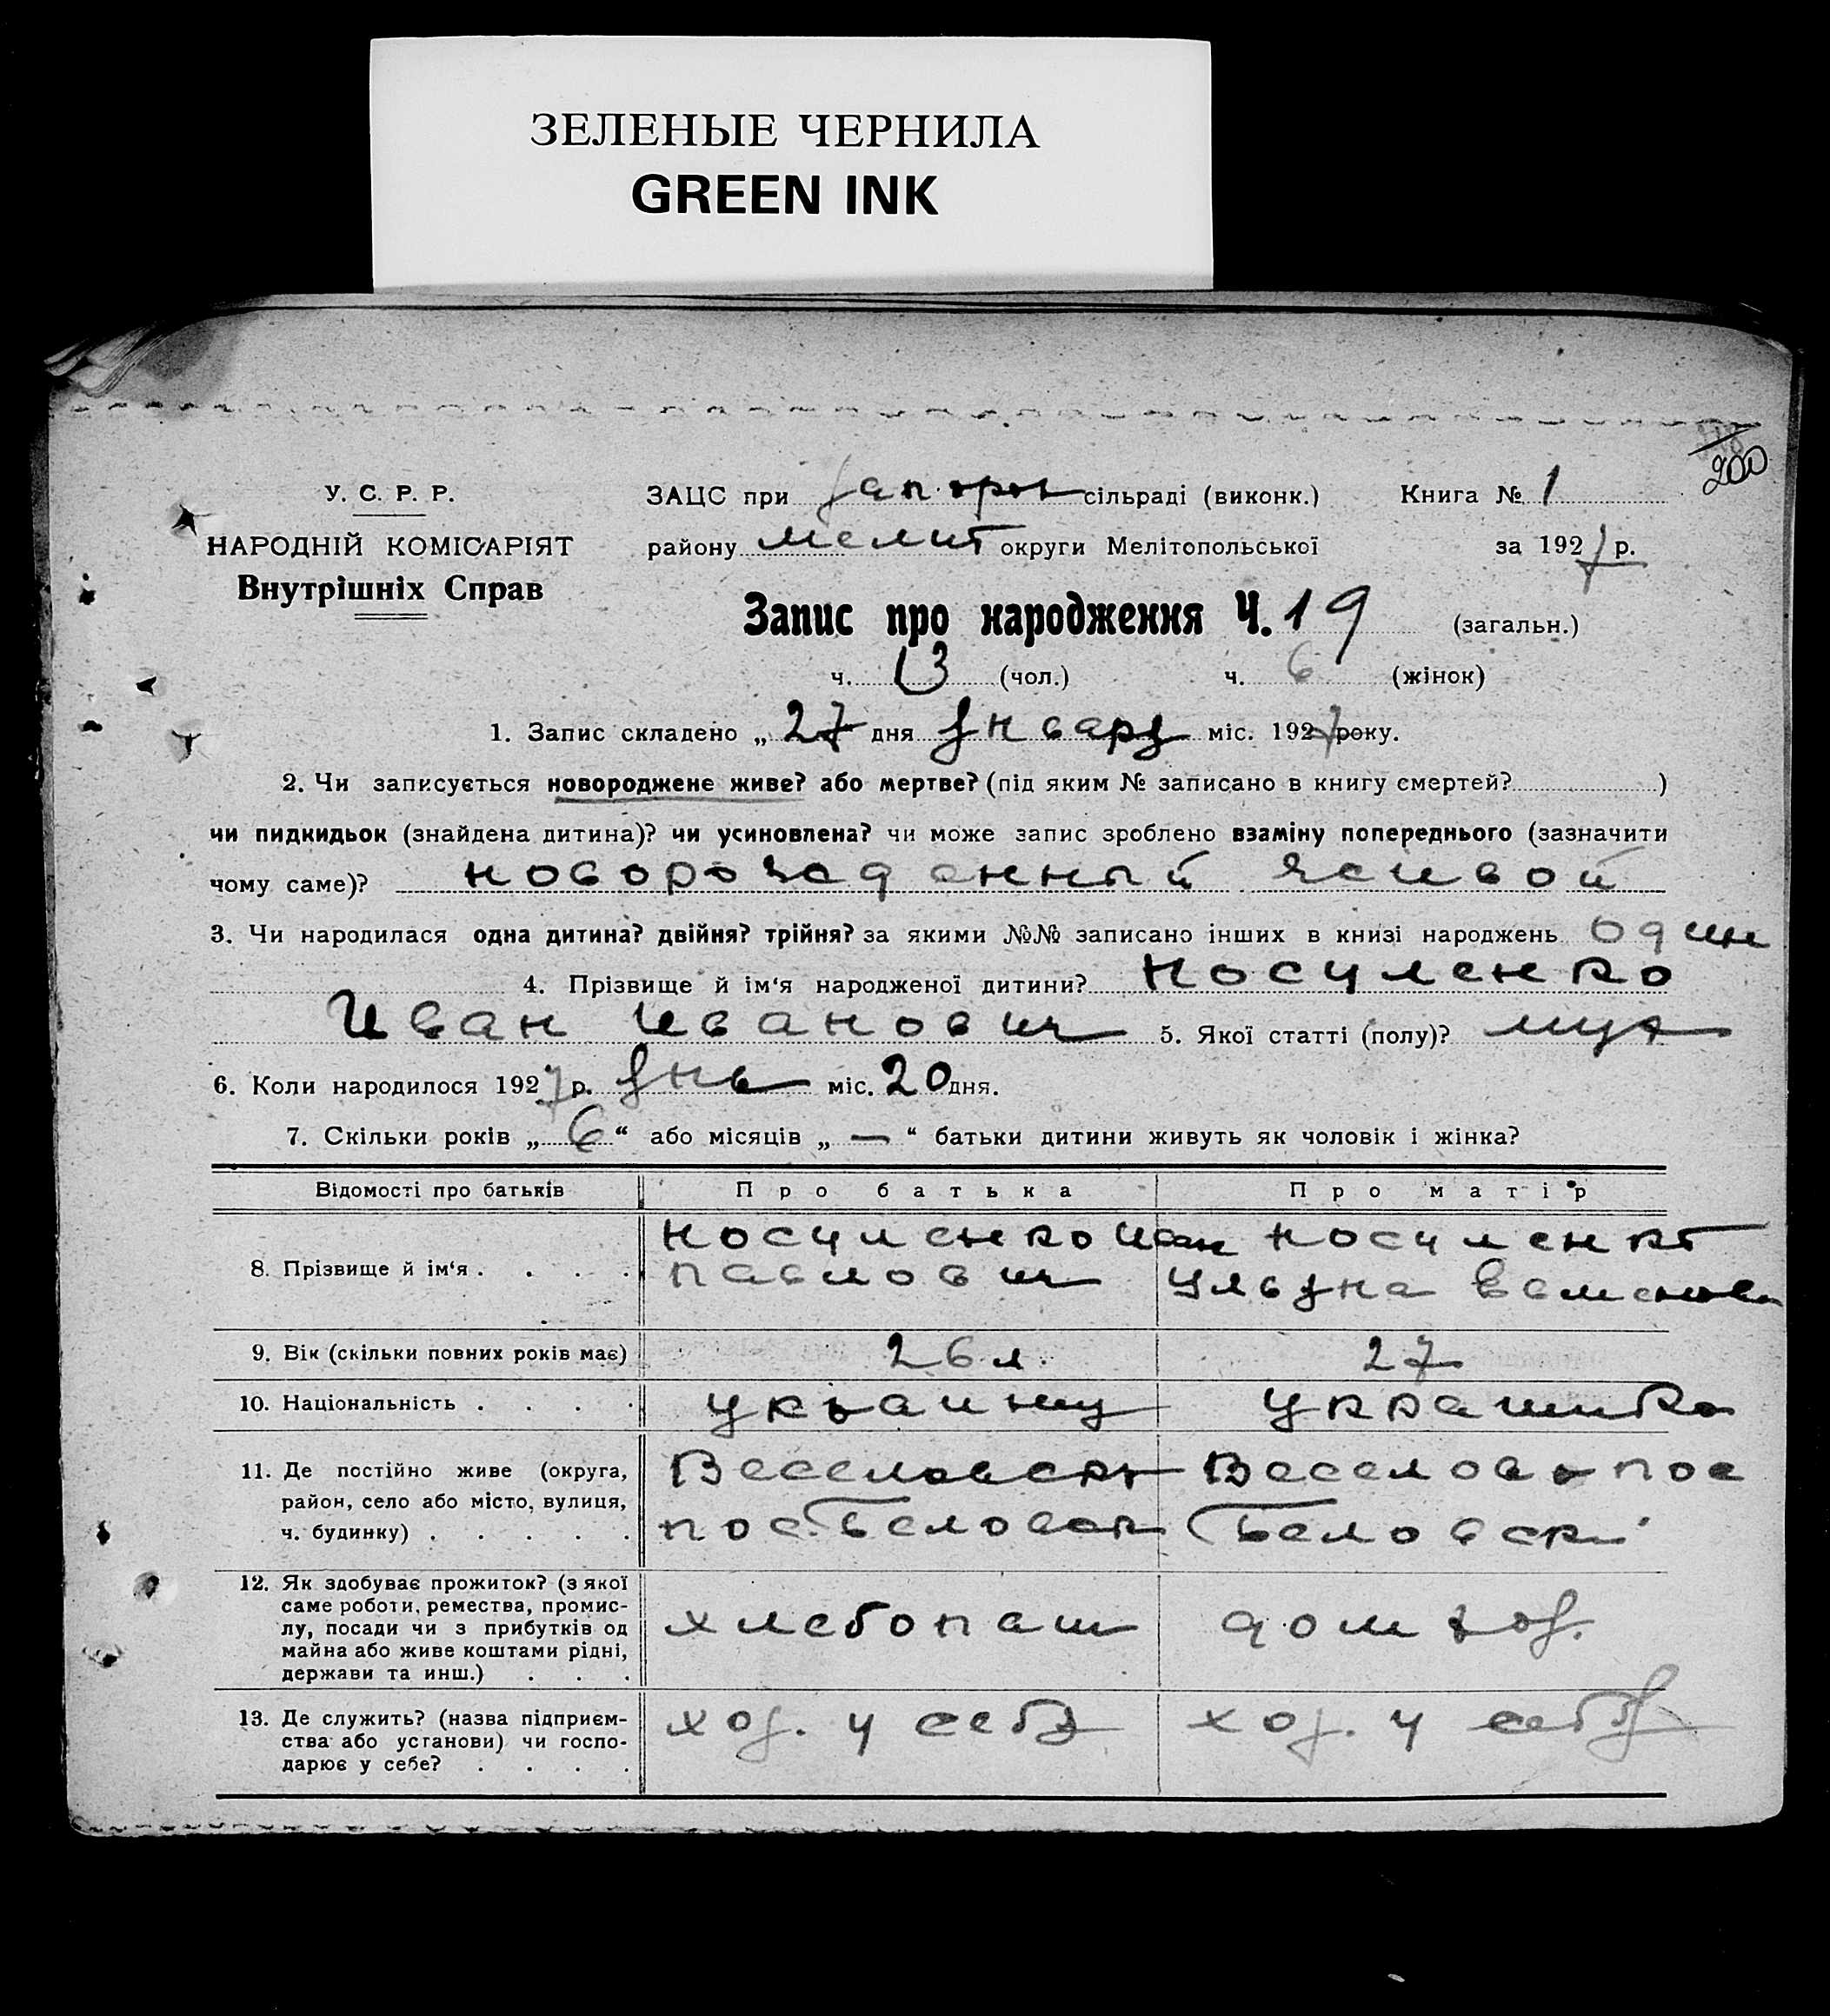 ЗЕЛЕНЫЕ ЧЕРНИЛА
GREEN INK
200
У. С. Р. Р.
НАРОДНІЙ КОМІСАРІЯТ
Внутрішніх Справ
ЗАЦС при сільраді (виконк.) Книга № 1
району Мелит округи Мелітопольської за 1927 р.
Запис про народження Ч. 19 (загальн.)
ч. 13 (чол.) ч. 6 (жінок)
1. Запис складено „ 27 дня Января міс. 1927 року.
2. Чи записується новороджене живе? або мертве? (під яким № записано в книгу смертей? )
чи пидкидьок (знайдена дитина)? чи усиновлена? чи може запис зроблено взаміну попереднього (зазначити
чому саме)? новорожденный живой
3. Чи народилася одна дитина? двійня? трійня? за якими №№ записано інших в книзі народжень один
4. Прізвище й ім‘я народженої дитини? Носуленко
Иван Иванович 5. Якої статті (полу)? муж
6. Коли народилося 1927 р. Янв міс. 20 дня.
7. Скільки років „ 6 “ або місяців „ — “ батьки дитини живуть як чоловік і жінка?
Відомості про батьків Про батька Про матір
8. Прізвище й ім‘я . . . . Носуленко Иван Носуленко
Павлович Ульяна
9. Вік (скільки повних років має) 26 л. 27
10. Національність . . . . украинц украинка
11. Де постійно живе (округа, Веселовск Веселов пос
район, село або місто, вулиця,
ч. будинку) . . . . . пос. Беловск Беловск
12. Як здобуває прожиток? (з якої
саме роботи, ремества, промис-
лу, посади чи з прибутків од хлебопаш дом хоз.
майна або живе коштами рідні,
держави та инш.) . . .
13. Де служить? (назва підприєм- хоз. у себя хоз. у себя
ства або установи) чи госпо-
дарює у себе? . . . .